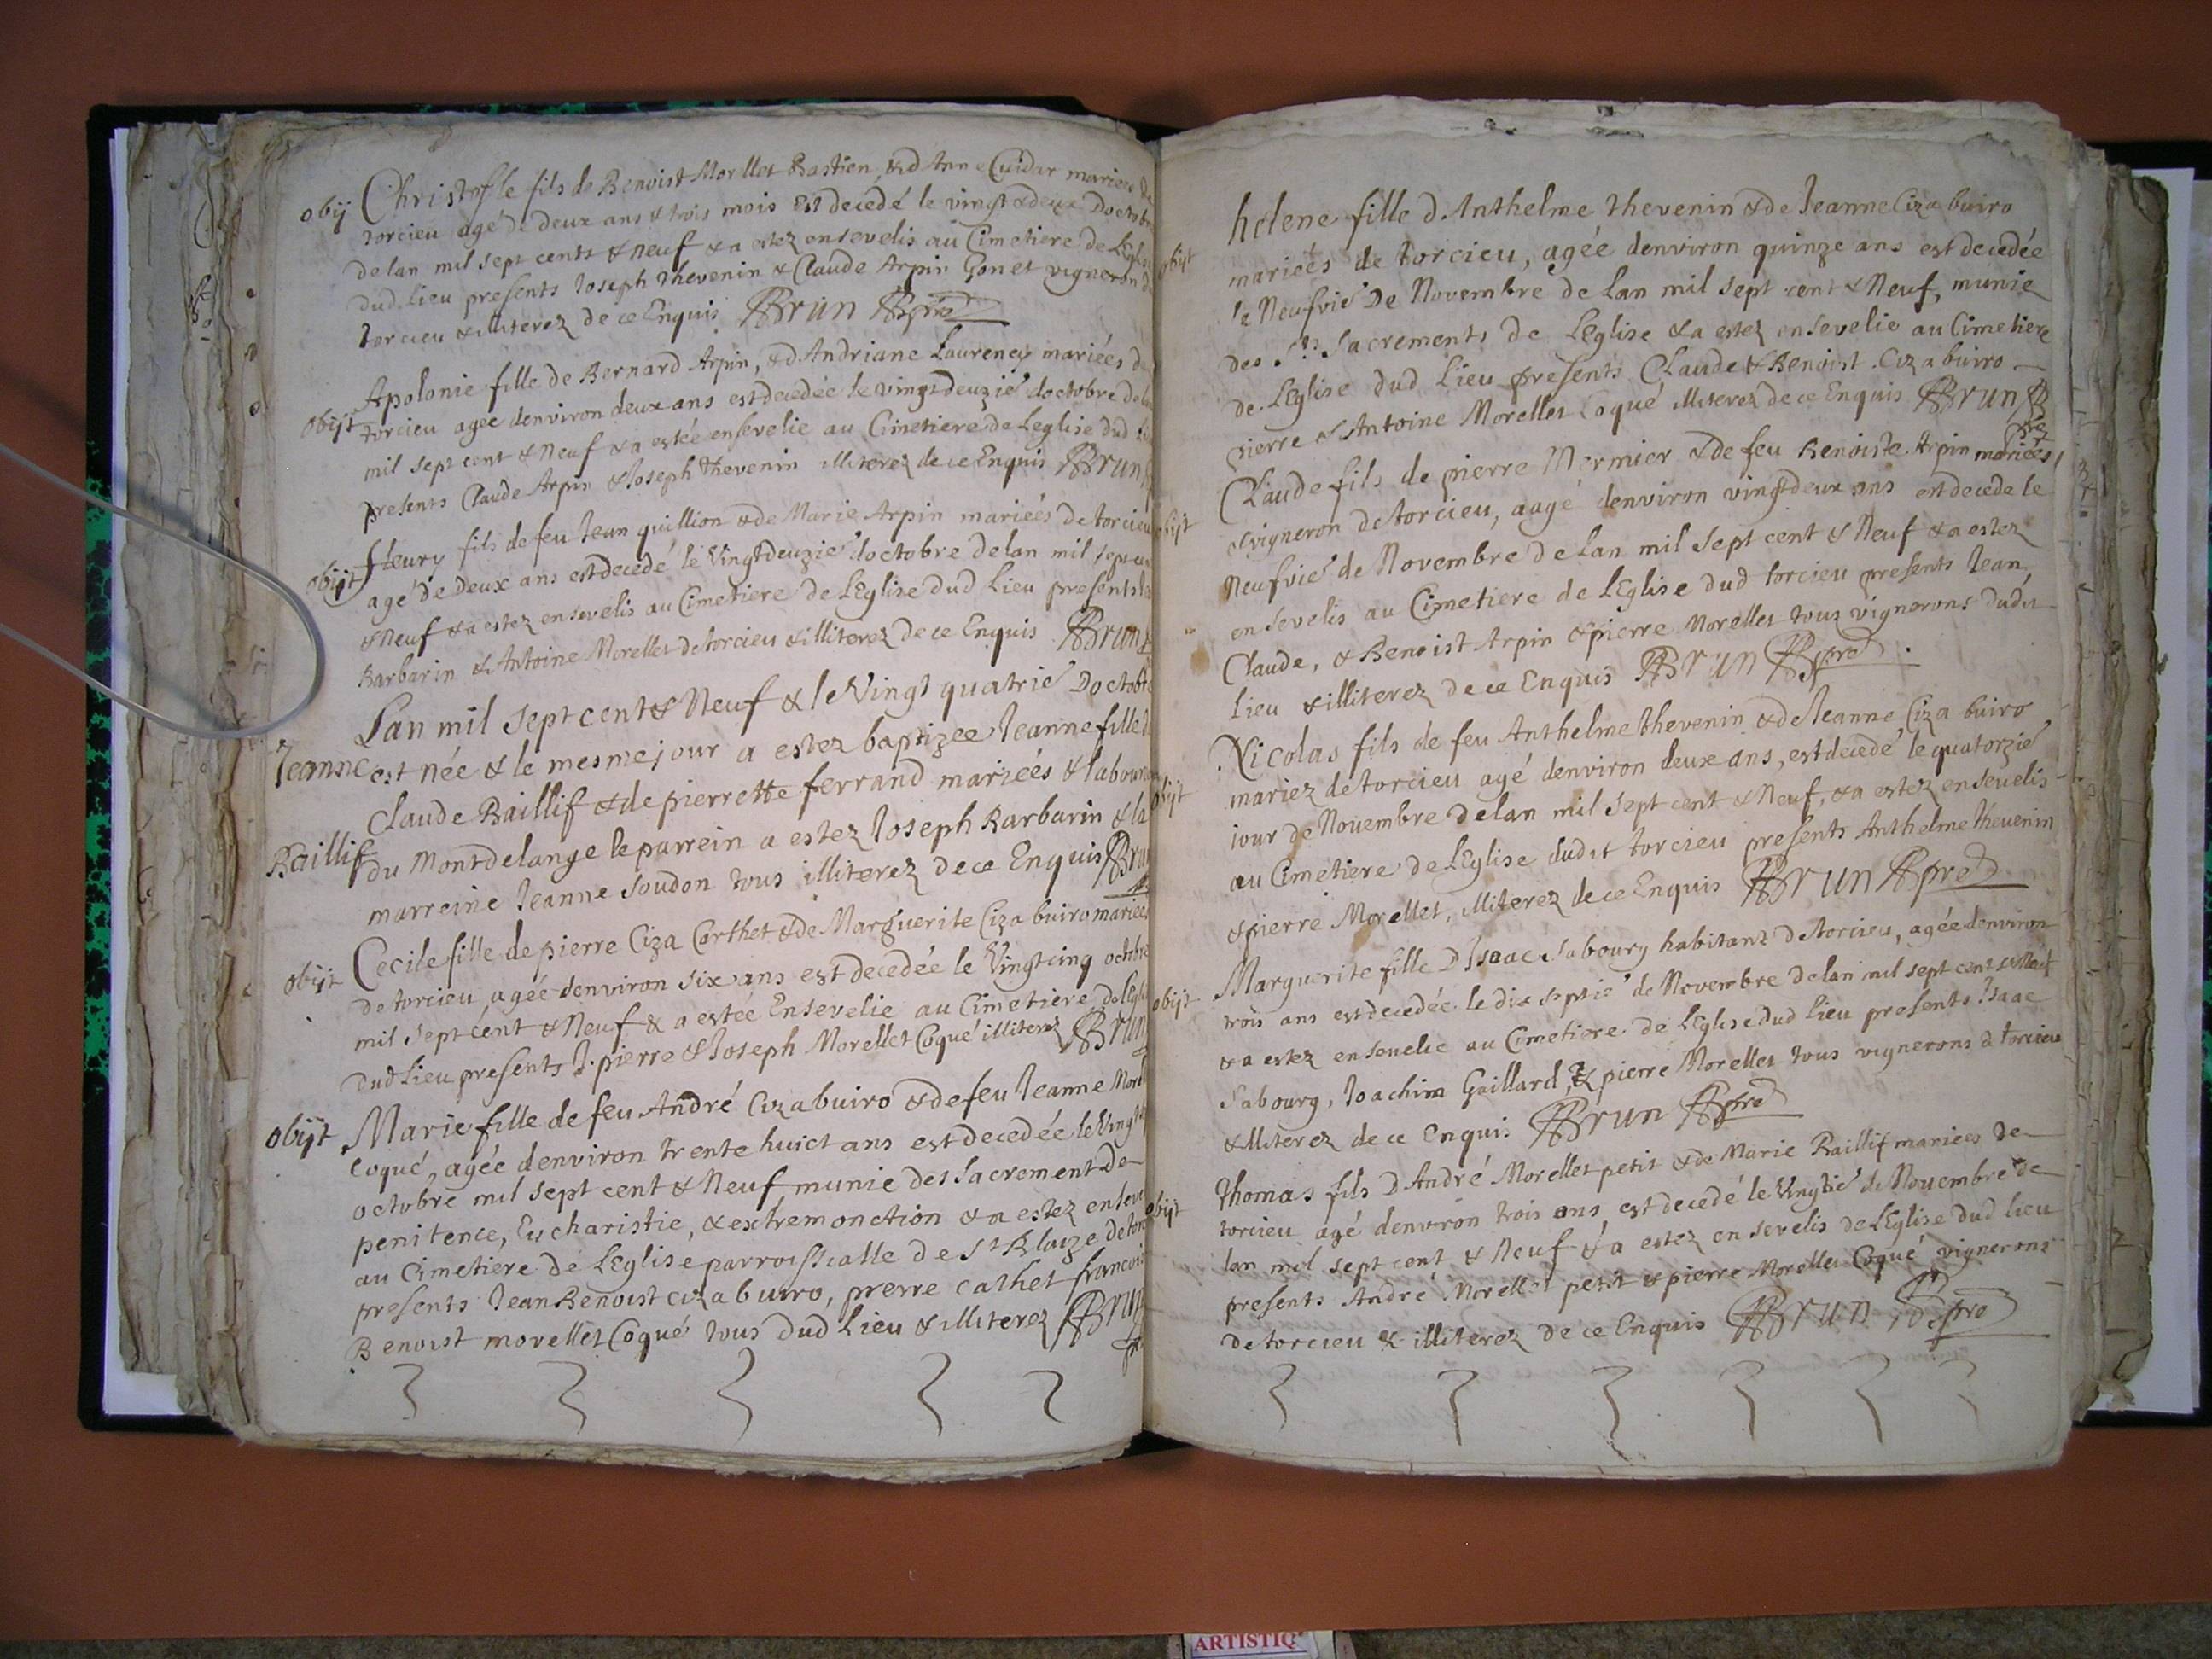 obij Christofle fils de Benoist Morellet Bastien, & d'Anne Cuidar mariees de
torcieu agé de deux ans & trois mois Est decedé le vingt & deux Doctobre
de lan mil sept cents & neuf & a estez ensevelis au Cimetiere de LEglise
dud. Lieu presents Joseph thevenin & Claude Arpin Gonet vigneron de
torcieu & illiterez de ce Enquis Brun pre
Apolonie fille de Bernard Arpin, & d'Andriane Laurency mariées de
obijt torcieu agee denviron deux ans est decedée le vingt deuzie doctobre de lan
mil sept cent & Neuf & a estée ensevelie au Cimetiere de Leglise dud
presents Claude Arpin & Joseph thevenin illiterez de ce Enquis Brun
fleury fils de feu Jean quillion & de Marie Arpin mariées de torcieu
obijt agé de Deux ans est decedé le Vingt deuzie doctobre de lan mil sept cent
& Neuf & a estez ensevelis au Cimetiere de LEglise dud Lieu presents
Barbarin & Antoine Morellet de torcieu & illiterez de ce Enquis Brun
Lan mil sept cent & Neuf & le Vingt quatrie Doctobre
Jeanne est née & le mesme jour a estez baptizee Jeanne fille
Claude Baillif & de pierrette ferrand mariées & labour
Baillif du Mont de lange le parrein a estez Joseph Barbarin & la
marreine Jeanne Soudon tous illiterez de ce Enquis Brun
Cecile fille de pierre Ciza Carthet & de Marguerite Ciza buiro mariées
obijt de torcieu, agée denviron six ans est decedée le Vingt cinq octobre
mil sept cent & Neuf & a estée Ensevelie au Cimetiere de LEglise
dud Lieu presents J. pierre & Joseph Morellet Coqué illiterez Brun
obijt Marie fille de feu André Ciza buiro & de feu Jeanne Morel
Coqué, agée denviron trente huict ans est decedée le Vingt
octobre mil sept cent & Neuf munie des Sacrement de
penitence, Eucharistie, & extremonction & a estez enseve
au Cimetiere de LEglise parroissialle de St Blaize de torc
presents Jean Benoist ciza buiro, pierre Cathet francois
Benoist morellet Coqué tous dud Lieu & illiterez Brun
helene fille d'Anthelme thevenin & de Jeanne Ciza buiro
obijt mariées de torcieu, agée denviron quinze ans est decedée
le Neufvie De Novembre de Lan mil sept cent & Neuf, munie
des Sts Sacrements de LEglise & a estez ensevelie au Cimetiere
de LEglise dud Lieu presents Claude & Benoist Ciza buiro
pierre & Antoine Morellet Coqué illiterez de ce Enquis Brun pre
Claude fils de pierre Mermier & de feu Benoiste Arpin mariées
obijt & vigneron de torcieu, aagé denviron vingt deux ans est decede le
Neufvie de Novembre de Lan mil sept cent & Neuf & a estez
ensevelis au Cimetiere de LEglise dud torcieu presents Jean,
Claude, & Benoist Arpin & pierre Morellet tous vignerons dudit
Lieu & illiterez de ce Enquis Brun pre
Nicolas fils de feu Anthelme thevenin & de Jeanne Ciza buiro
obijt mariez de torcieu agé denviron deux ans, est decedé le quatorzie
jour de Novembre de lan mil sept cent & Neuf, & a estez ensevelis
au Cimetiere de LEglise dudit torcieu presents Anthelme thevenin
& pierre Morellet, illiterez de ce Enquis Brun pre
Marguerite fille D'Isaac Saboury habitant de torcieu, agée denviron
obijt trois ans est decedée le dix septie de Novembre de lan mil sept cent & Neuf
& a estez ensevelie au Cimetiere de LEglise dud Lieu presents Isaac
Saboury, Joachim Gaillard, & pierre Morellet tous vignerons d torcieu
& illiterez de ce Enquis Brun pre
thomas fils D'André Morellet petit & de Marie Baillif mariees de
obijt torcieu agé denviron trois ans est decedé le Vingtie de Novembre de
lan mil sept cent & Neuf & a estez ensevelis de LEglise dud lieu
presents André Morellet petit & pierre Morellet Coqué vignerons
de torcieu & illiterez de ce Enquis Brun pre
ARTISTIQ